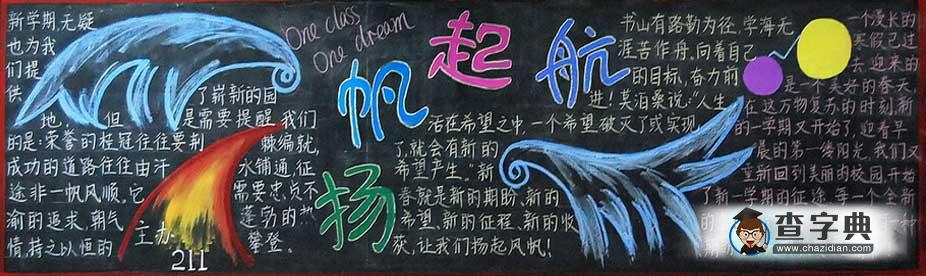 新学期,无疑
也为我
们提
供了崭新的园
地,但是需要提醒我们
的是:荣誉的桂冠往往要荆棘编就,
成功的道路往往由汗水铺通,征
途非一帆风顺,它需要忠贞不
渝的追求,朝气蓬勃的热
情,持之以恒的攀登。
主办
211
One class
One dream
扬帆起航
书山有路勤为径,学海无
涯苦作舟,向着自己
的目标,奋力前
进!莫泊桑说:"人生
活在希望之中,一个希望破灭了或实现
了,就会有新的
希望产生。"新
春就是新的期盼、新的
希望、新的征程、新的收
获,让我们扬起风帆!
一个漫长的
寒假已过
去,迎来的
是一个美好的春天,
在这万物复苏的时刻新
的一学期又开始了,迎着早
晨的第一缕阳光,我们又
重新回到美丽的校园开始
了新一学期的征途。每一个全新
的
一种
查字典
www.chazidian.com